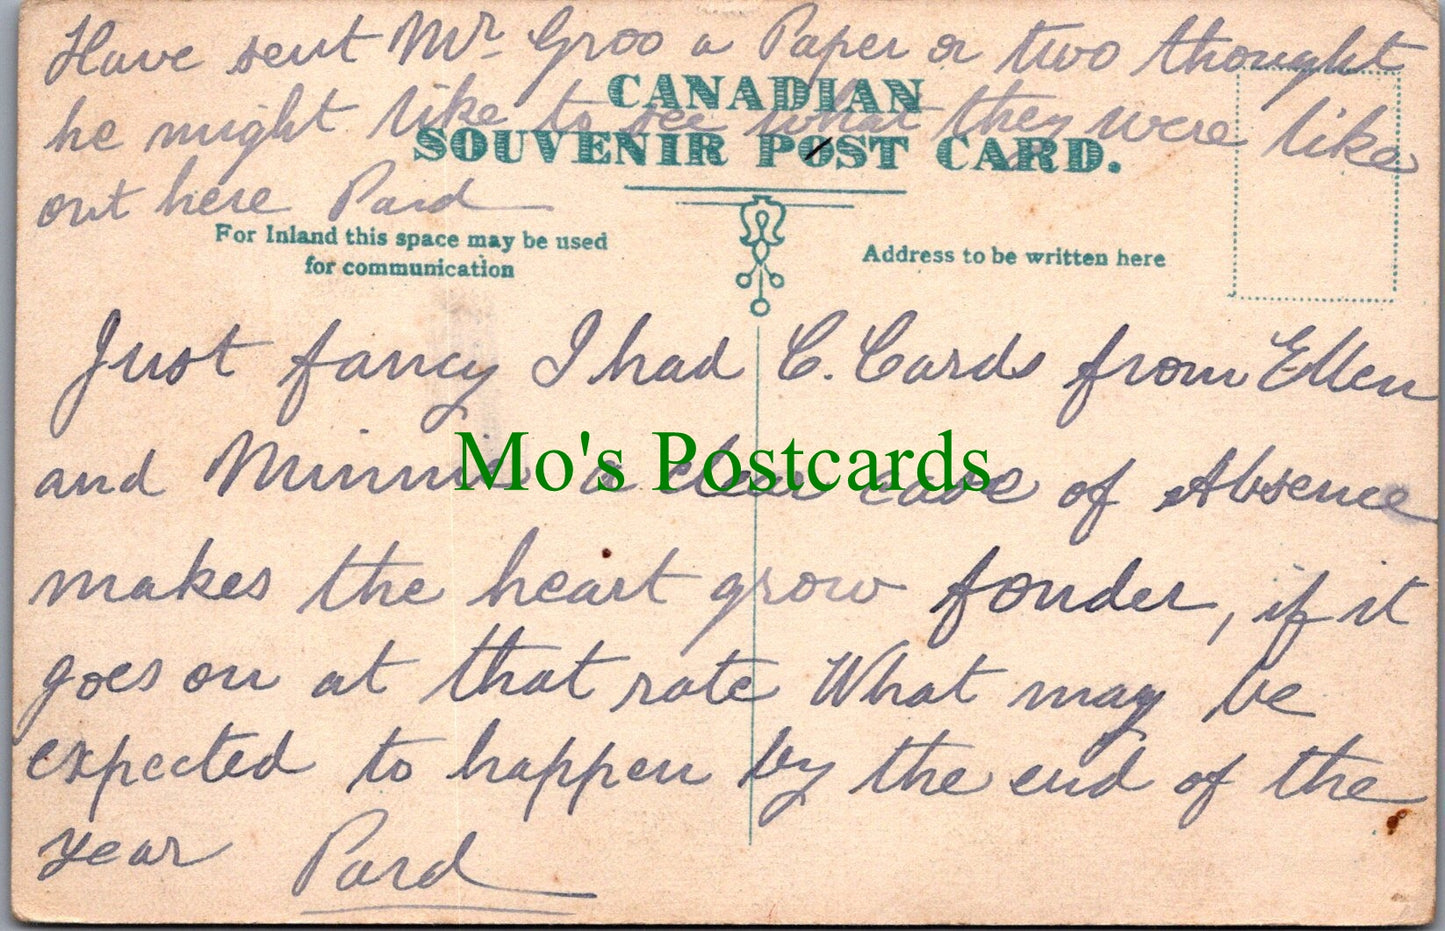 Have sent Mr Groo a Paper or two thought
he might like to see what they were like
out here Pard
CANADIAN
SOUVENIR POST CARD.
For Inland this space may be used
for communication
Address to be written here
Just fancy I had C. Cards from Ellen
and Minnie a clear case of Absence
makes the heart grow fonder, if it
goes on at that rate What may be
expected to happen by the end of the
year Pard
Mo's Postcards